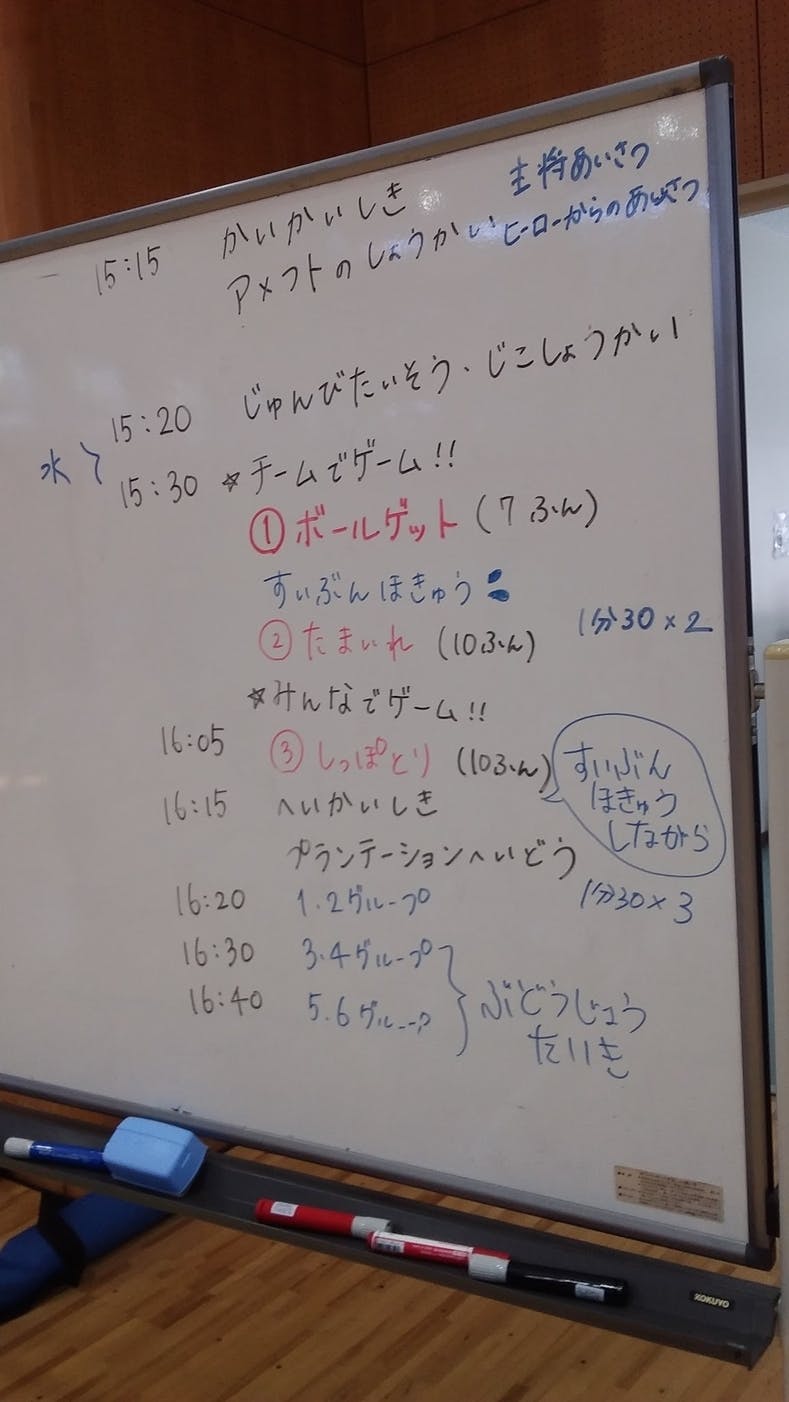 主将あいさつ
15:15 かいかいしき
アメフトのしょうかい ヒーローからのあいさつ
15:20 じゅんびたいそう・じこしょうかい
水
15:30 ☆チームでゲーム!!
① ボールゲット (7ふん)
すいぶんほきゅう
1分30×2
② たまいれ (10ふん)
☆みんなでゲーム!!
16:05 ③ しっぽとり (10ふん)
すいぶん
ほきゅう
しながら
16:15 へいかいしき
プランテーションへいどう
1分30×3
16:20 1.2グループ
16:30 3.4グループ
16:40 5.6グループ
ぶどうじょう
たいき
KOKUYO